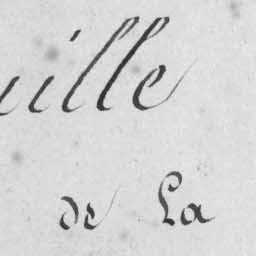 uille
de La